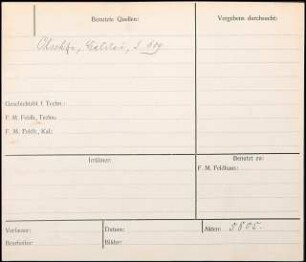 Benutzte Quellen:
Vergebens durchsucht:
Olschki, Galilei, S. 
Geschichtsbl. f. Techn.:
F. M. Feldh., Techn.:
F. M. Feldh., Kal.:
Irrtümer:
Benutzt zu:
F. M. Feldhaus:
Verfasser:
Datum:
Akten: 5805.
Bearbeiter:
Bilder: